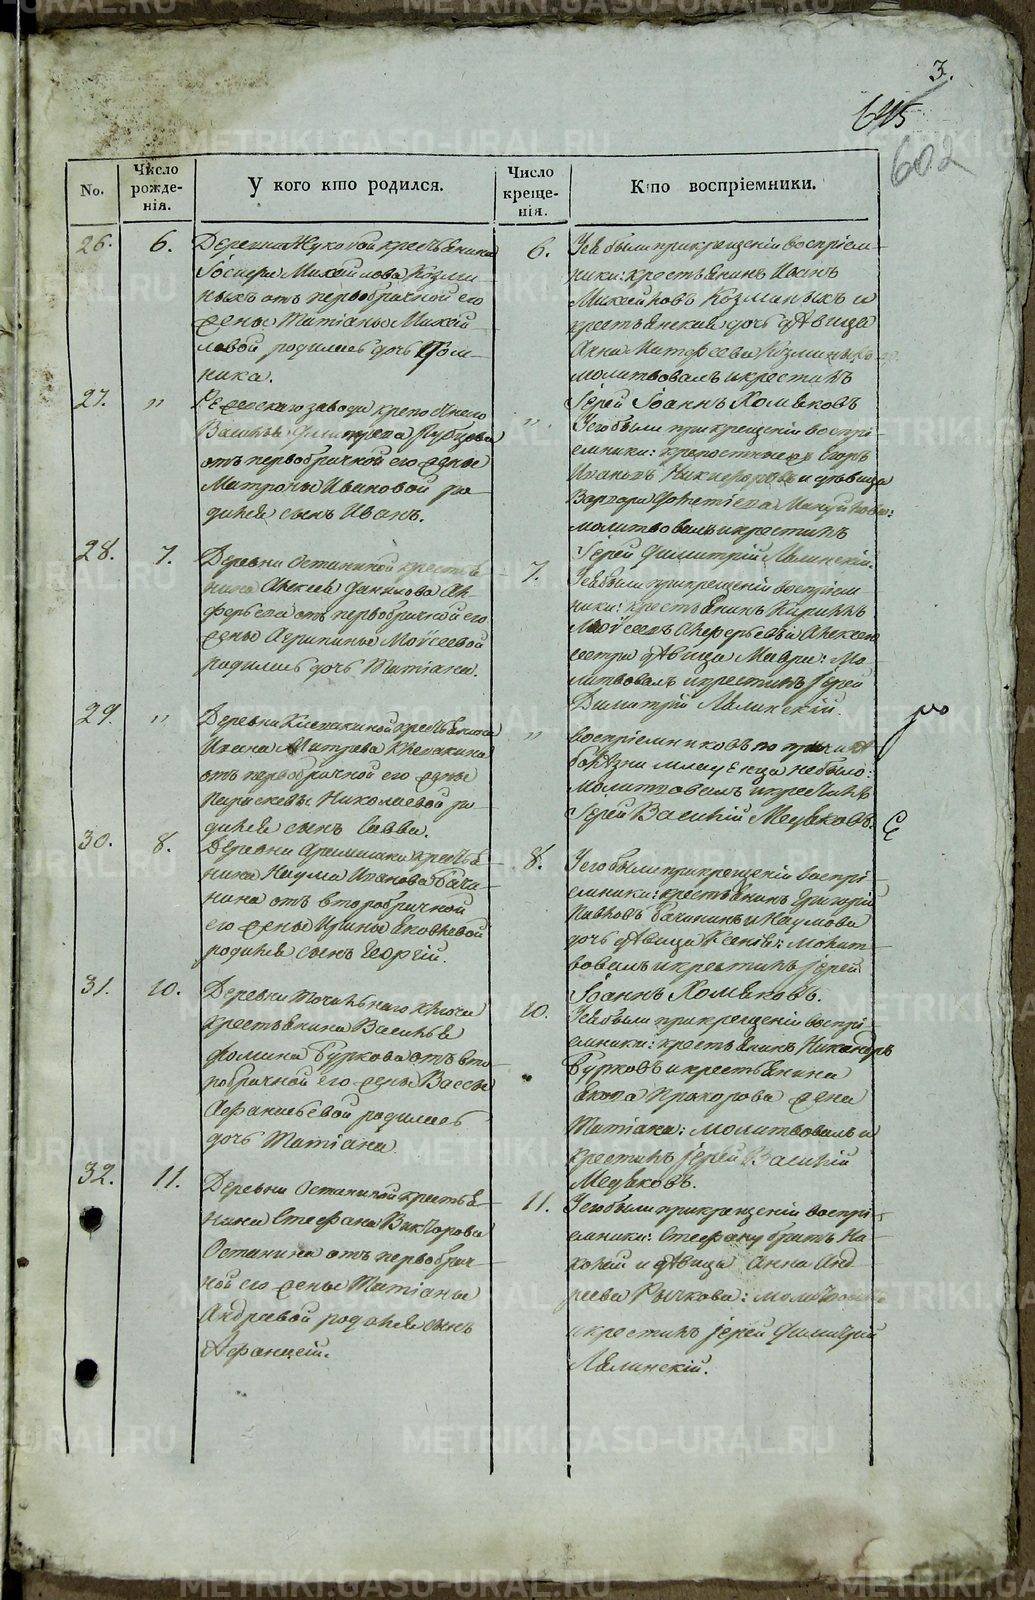 3.
645
602
No.
Число рожде-нія.
У кого кто родился.
Число креще-нія.
Кто воспріемники.
26.
6.
Деревни Жуковой крестьянина
Михайлова Козми-
ныхъ отъ первобрачной его
жены Татіаны Михай-
ловой родилась дочь Дом-
ника.
6.
Ея были при крещеніи воспріем-
ники: крестьянинъ Иванъ
Михайловъ Козминыхъ и
крестьянская дочь дѣвица
Анна Матфеева Козминых
молитвовалъ и крестилъ
Іерей Іоаннъ Хомяковъ
27.
"
Режевскаго завода крепостнаго
Василья Дмитрева
отъ первобрачной его жены
Матроны Ивановой ро-
дился сынъ Иванъ.
"
Его были при крещеніи воспрі-
емники: крепостные Егоръ
Ивановъ Никифоровъ и дѣвица
Варвара
молитвовалъ и крестилъ
Іерей Димитрій Лялинскій.
28.
7.
Деревни Останиной крестья-
нина Алексея Данилова Ал-
ферьева отъ первобрачной его
жены Агрипины Моѵсеевой
родилась дочь Татіана.
7.
Ея были при крещеніи воспріем
ники: крестьянинъ Кирилъ
Моѵсеевъ Алферьевъ и Алексея
сестра дѣвица Мавра: мо-
литвовалъ и крестилъ Іерей
Димитрій Лялинскій
29.
"
Деревни Клевакиной крестьянина
Ивана Митрева Клевакина
отъ первобрачной его жены
Параскевы Николаевой ро-
дился сынъ Савва.
"
воспріемниковъ по причинѣ
болѣзни младенца небыло:
молитвовалъ и крестилъ
Іерей Василій Медяковъ.
30.
8.
Деревни Арамашки крестья-
нина Наума Иванова Бачи-
нина отъ второбрачной
его жены Ирины Яковлевой
родился сынъ Георгій.
8.
Его были при крещеніи воспрі-
емники: крестьянинъ Григорій
Павловъ Бачининъ и Наумова
дочь дѣвица Ксенія: молит-
вовалъ и крестилъ Іерей
Іоаннъ Хомяковъ.
31.
10.
Деревни Точильнаго ключа
крестьянина Василья
Фомина Буркова отъ вто-
робрачной его жены Вассы
Афанасьевой родилась
дочь Татіана
10.
Ея были при крещеніи воспрі-
емники: крестьянинъ Никандръ
Бурковъ и крестьянина
Якова Прохорова жена
Татіана: молитвовалъ и
крестилъ Іерей Василій
Медяковъ.
32.
11.
Деревни Останиной крестья-
нина Стефана Викторова
Останина отъ первобрач-
ной его жены Татіаны
Андревой родился сынъ
Афанасій.
11.
Его были при крещеніи воспрі-
емники: Стефану братъ Ни-
колай и дѣвица Анна Анд
реева Рычкова: молитвовалъ
и крестилъ Іерей Димитрій
Лялинскій.
METRIKI.GASO-URAL.RU